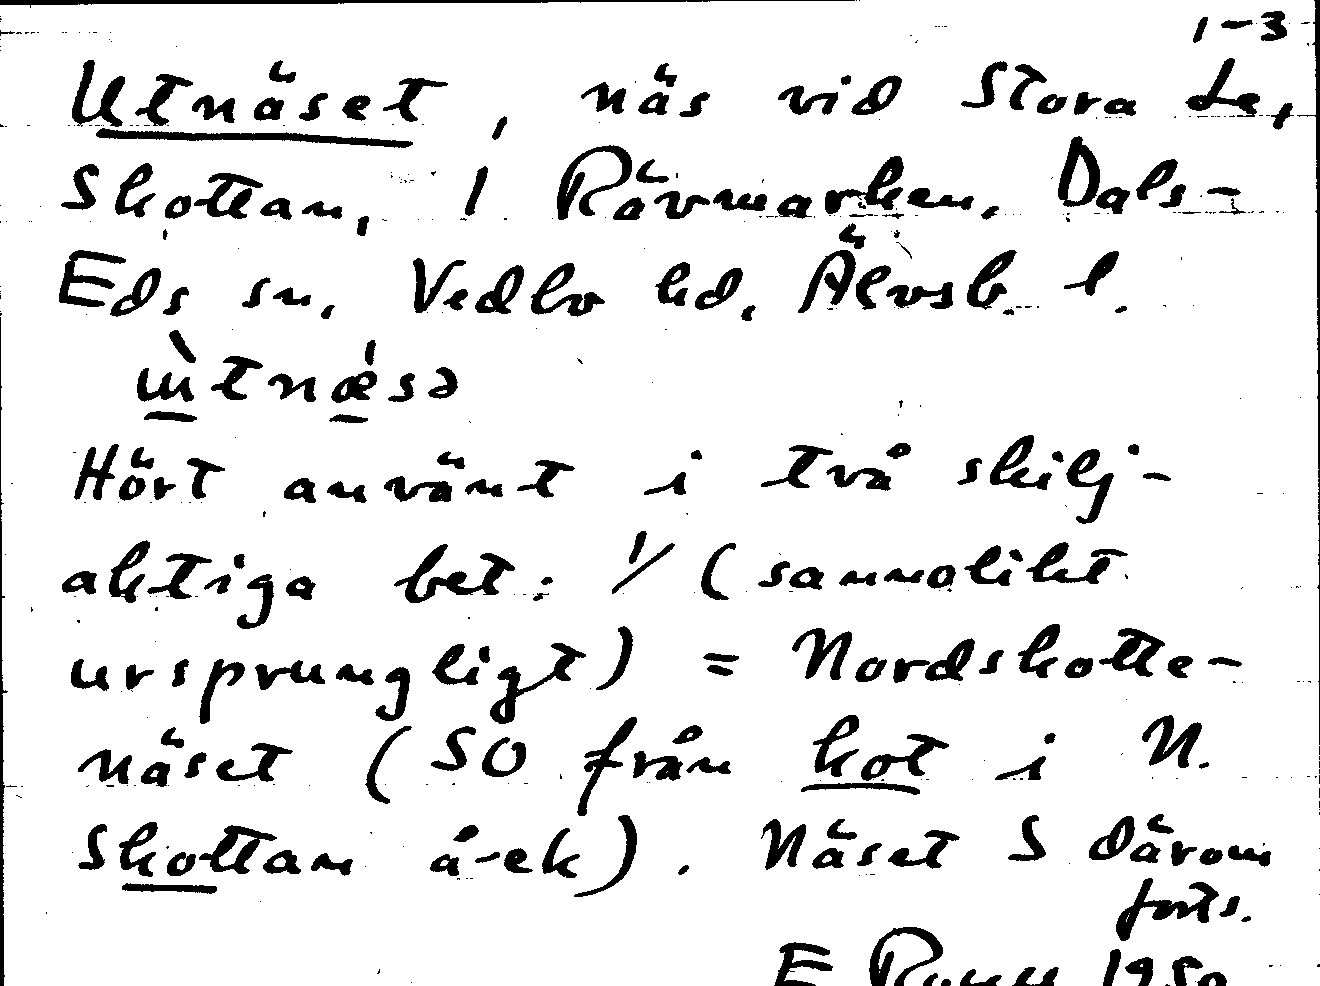 1-3
Utnäset, näs vid Stora Le,
Skottan, 1 Rävmarken, Dals-
Eds sn, Vedbo hd, Älvsb. l.
ɯ̀tnǽsə
Hört använt i två skilj-
aktiga bet: 1/ (sannolikt
ursprungligt) = Nordskotte-
näset (SO från kot i N.
Skottan å-ek). Näset S därom
forts.
E 19